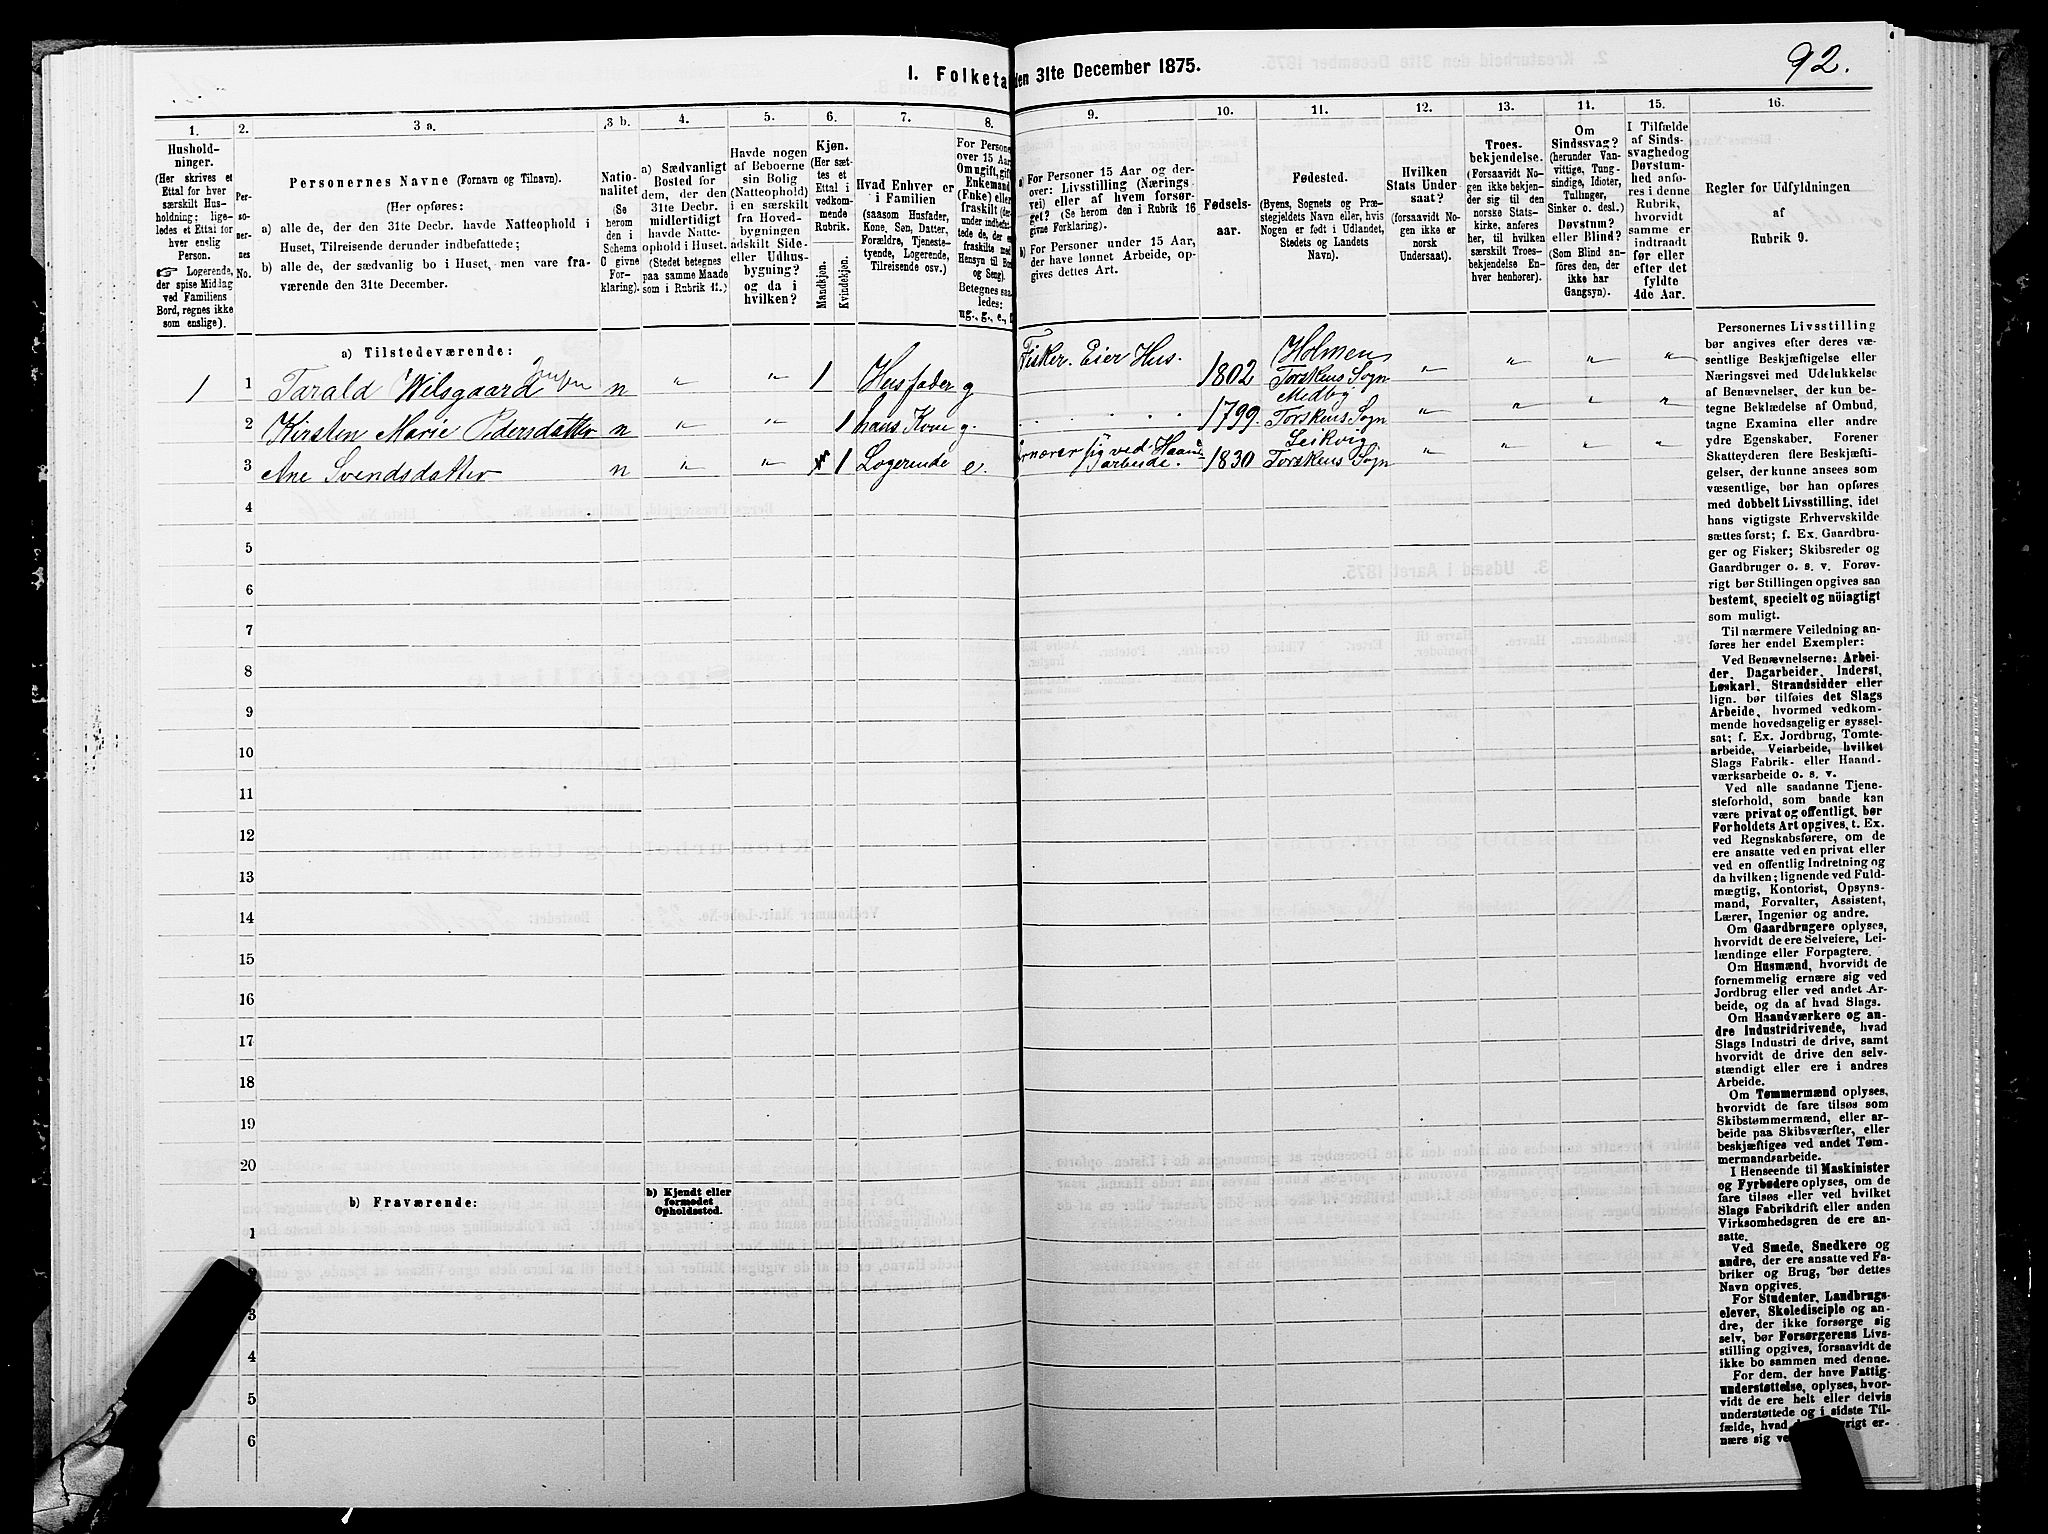 92.
I. Folketa den 31te December 1875.
1. 2. 3 a. 3 b. 4. 5. 6. 7. 8. 9. 10. 11. 12. 13. 14. 15. 16.
Hushold-
ninger.
(Her skrives et
Ettal for hver
særskilt Hus-
holdning; lige-
ledes et Ettal
for hver enslig
Person.
☞ Logerende,
der spise Middag
ved Familiens
Bord, regnes ikke
som enslige).
Per-
so-
ner-
nes
No.
Personernes Navne (Fornavn og Tilnavn).
(Her opføres:
a) alle de, der den 31te Decbr. havde Natteophold i
Huset, Tilreisende derunder indbefattede;
b) alle de, der sædvanlig bo i Huset, men vare fra-
værende den 31te December.
Natio-
nalitet
(Se
herom
den i
Schema
C givne
For-
klaring).
a) Sædvanligt
Bosted for
dem, der den
31te Decbr.
midlertidigt
havde Natte-
ophold i Huset.
(Stedet betegnes
paa samme Maade
som i Rubrik 11.)
Havde nogen
af Beboerne
sin Bolig
(Natteophold)
i en særskilt
fra Hoved-
bygningen
adskilt Side-
eller Udhus-
bygning?
og da i
hvilken?
Kjøn.
(Her sæt-
tes et
Ettal i
vedkom-
mende
Rubrik.
Mandkjøn.
Kvindekjøn.
Hvad Enhver er
i Familien
(saasom Husfader,
Kone, Søn, Datter,
Forældre, Tjeneste-
tyende, Logerende,
Tilreisende osv.)
For Persone
over 15 Aar
Om ugift, gift
Enkemand
(Enke) eller
fraskilt
Hensyn til Bo
og Seng).
Betegnes saa-
ledes:
ug., g., e.,
a) For Personer 15 Aar og der-
over: Livsstilling (Nærings
vei) eller af hvem forsør-
get? (Se herom den i Rubrik 16
givne Forklaring).
b) For Personer under 15 Aar,
der have lønnet Arbeide, op-
gives dettes Art.
Fødsels-
aar.
Fødested.
(Byens, Sognets og Præ-
stegjeldets Navn eller, hvis
Nogen er født i Udlandet,
Stedets og Landets
Navn).
Hvilken
Stats Under-
saat?
(forsaavidt No-
gen ikke er
norsk
Undersaat).
Troes-
bekjendelse.
(Forsaavidt No-
gen ikke bekjen-
der sig til den
norske Stats-
kirke, anføres
her, til hvilken
særskilt Troes-
bekjendelse En-
hver henhører).
Om
Sindssvag?
(herunder Van-
vittige, Tung-
sindige, Idioter,
Tullinger,
Sinker o. desl.)
Døvstum?
eller Blind?
(Som Blind an-
føres den, der
ikke har
Gangsyn).
I Tilfælde
af Sinds-
svaghed og
Døvstum-
hed anfø-
res i denne
Rubrik,
hvorvidt
samme er
indtraadt
før eller
efter det
fyldte
4de Aar.
Regler for Udfyldningen
af
Rubrik 9.
a) Tilstedeværende:
1 1 Tarald Wilsgaard Jensen n " " 1 Husfader g Fisker. Eier Hus. 1802 Holmen Torskens Sogn " " " "
2 Kirsten Marie Pedersdatter n " " 1 hans Kone g. 1799. Medby Torskens Sogn " " " "
3 Ane Svendsdatter n " " 1 Logerende e. ernærer sig ved Haandarbeide. 1830 Leikvig Torskens Sogn " " " "
4
5
6
7
8
9
10
11
12
13
14
15
16
17
18
19
20
b) Fraværende:
b) Kjendt eller
formodet
Opholdssted.
1
3
4
5
6
Personernes Livsstilling
bør angives efter deres væ-
sentlige Beskjæftigelse eller
Næringsvei med Udelukkelse
af Benævnelser, der kun be-
tegne Beklædelse af Ombud,
tagne Examina eller andre
ydre Egenskaber. Forener
Skatteyderen flere Beskjæfti-
gelser, der kunne ansees som
væsentlige, bør han opføres
med dobbelt Livsstilling, idet
hans vigtigste Erhvervskilde
sættes først; f. Ex. Gaardbru-
ger og Fisker; Skibsreder og
Gaardbruger o. s. v. Forøv-
rigt bør Stillingen opgives saa
bestemt, specielt og nöiagtigt
som muligt.
Til nærmere Veiledning an-
føres her endel Exempler:
Ved Benævnelserne: Arbei-
der, Dagarbeider, Inderst,
Løskarl, Strandsidder eller
lign. bør tilføies det Slags
Arbeide, hvormed vedkom-
mende hovedsagelig er syssel-
sat; f. Ex. Jordbrug, Tomte-
arbeide, Veiarbeide, hvilket
Slags Fabrik- eller Haand-
værksarbeide o. s. v.
Ved alle saadanne Tjene-
steforhold, som baade kan
være privat og offentligt, bør
Forholdets Art opgives, t. Ex.
ved Regnskabsførere, om de
ere ansatte ved en privat eller
ved en offentlig Indretning og
da hvilken; lignende ved Fuld-
mægtig, Kontorist, Opsyns-
mand, Forvalter, Assistent,
Lærer, Ingeniør og andre.
Om Gaardbrugere oplyses,
hvorvidt de ere Selveiere, Lei-
lændinge eller Forpagtere.
Om Husmænd, hvorvidt de
fornemmelig ernære sig ved
Jordbrug eller ved andet Ar-
beide, og da af hvad Slags.
Om Haandværkere og an-
dre Industridrivende, hvad
Slags Industri de drive, samt
hvorvidt de drive den selv-
stændigt eller ere i andres
Arbeide.
Om Tømmermænd oplyses,
hvorvidt de fare tilsøs som
Skibstømmermænd, eller ar-
beide paa Skibsværfter, eller
beskjæftiges ved andet Tøm-
mermandsarbeide.
I Henseende til Maskinister
og Fyrbødere oplyses, om de
fare tilsøs eller ved hvilket
Slags Fabrikdrift eller anden
Virksomhedsgren de ere an-
satte.
Ved Smede, Snedkere og
andre, der ere ansatte ved Fa-
briker og Brug, bør dettes
Navn opgives.
For Studenter, Landbrugs-
elever, Skoledisciple og an-
dre, der ikke forsørge sig
selv, bør Forsørgerens Livs-
stilling opgives, forsaavidt de
ikke bo sammen med denne.
For dem, der have Fattig-
understøttelse, oplyses, hvor-
vidt de ere helt eller delvis
understøttede og i sidste Til-
fælde, hvad vrigt er-
nære sig ve